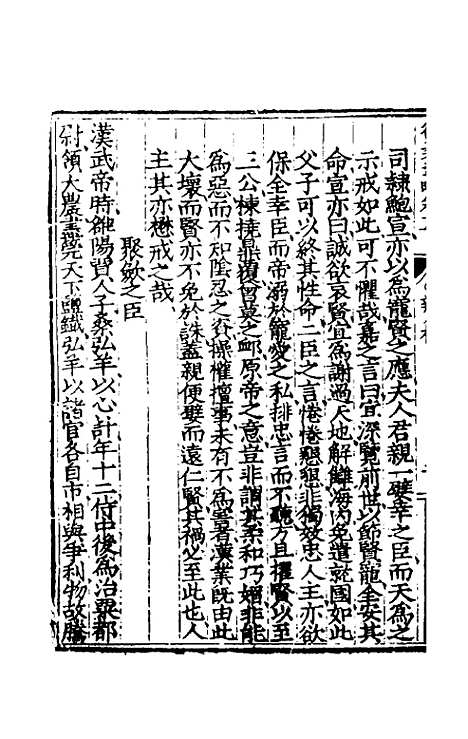 司隸鮑宣亦以為寵賢之應夫人君親一嬖幸之臣而天為之
示戒如此可不懼哉嘉之言曰宜深覽前世以節賢寵全安其
命宣亦曰誠欲哀賢宜為謝過天地解讎海內免遣就國如此
父子可以終其性命二臣之言惓惓懇懇非獨效忠人主亦欲
保全幸臣而帝溺於寵愛之私排忠言而不聽方且擢賢以至
三公棟撓鼎覆曾莫之卹原帝之意豈非謂其柔和巧媚非能
為惡而不知陰忍之資操權擅事未有不為害者漢業既由此
大壞而賢亦不免於誅蓋親便嬖而遠仁賢其禍必至此也人
主其亦懋戒之哉
聚斂之臣
漢武帝時雒陽賈人子桑弘羊以心計年十三侍中後為治粟都
尉領大農盡筦天下鹽鐵弘羊以諸官各自市相與爭利物故騰